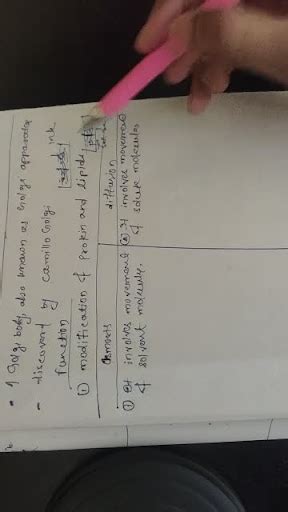 • 1 Golgi body also known as Golgi apparatus
- discovered by camillo Golgi
function
① modification of protein and lipids
ink.
Osmosis
diffusion
① It involves movement
of solvent molecules.
② It involves movement
of solute molecules